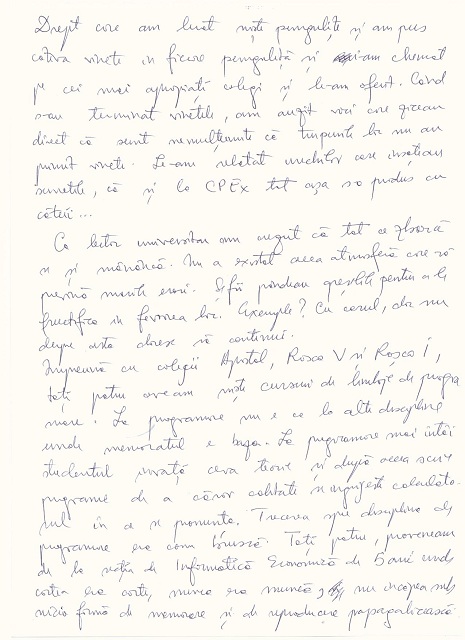 Drept care am luat niște pungulițe și am pus
câteva vinete în fiecare punguliță și i-am chemat
pe cei mai apropiați colegi și le-am oferit. Când
s-au terminat vinetele, am auzit voci care ziceau
direct că sunt nemulțumite că timpurile lor nu au
primit vinete. Le-am relatat unchilor care însoțeau
sumetele, că și la CPEx tot așa s-a produs cu
cărți...
Ca lector universitar am văzut că tot ce zboară
se și mănâncă. Nu a existat acea atmosferă care să
permită marile erori. Șefii pândeau greșelile pentru a le
fructifica în favoarea lor. Exemple? Cu carul, dar nu
despre asta doresc să continui.
Împreună cu colegii Apostol, Roșca V și Roșca I,
toți patru aveam niște cursuri de limbaje de progra
mare. La programare nu e ca la alte discipline
unde memoratul e baza. La programare mai întâi
studentul învață ceva teorie și după aceea scrie
programe de a căror calitate se îngrijește calculato-
rul în a se pronunța. Trecerea spre discipline de
programare era cam bruscă. Toți patru, proveneam
de la secția de Informatică Economică de 5 ani unde
cartea era carte, munca era muncă și nu încăpea sub
nicio formă de memorare și de reproducere papagalicească